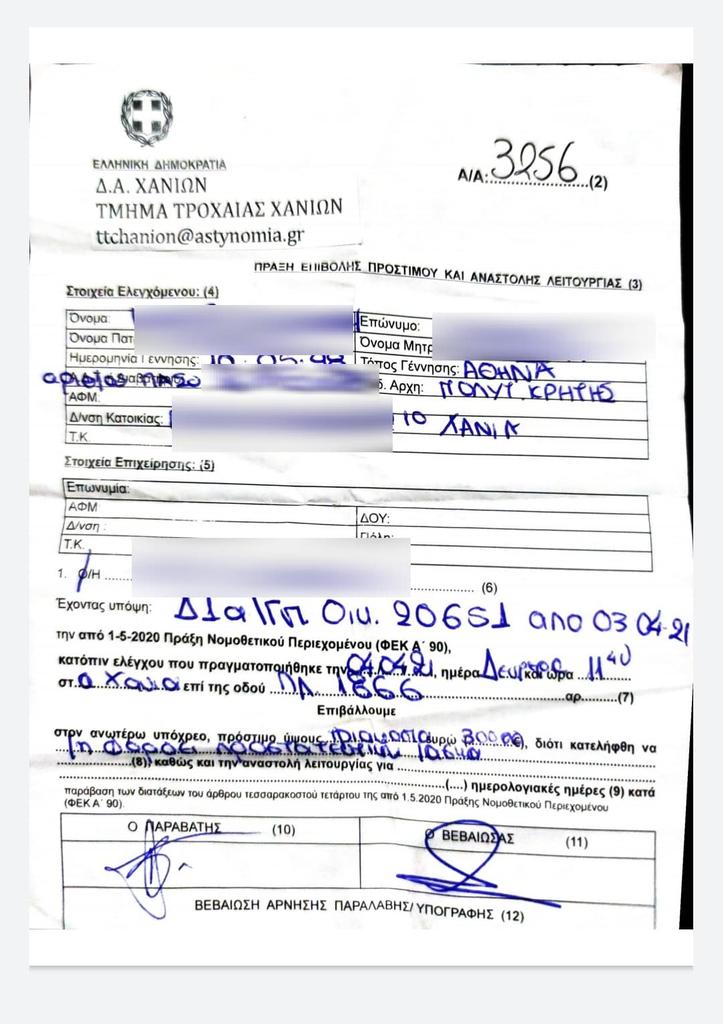 ΕΛΛΗΝΙΚΗ ΔΗΜΟΚΡΑΤΙΑ
Δ.Α. ΧΑΝΙΩΝ
ΤΜΗΜΑ ΤΡΟΧΑΙΑΣ ΧΑΝΙΩΝ
ttchanion@astynomia.gr
Α/Α: 3256 (2)
ΠΡΑΞΗ ΕΠΙΒΟΛΗΣ ΠΡΟΣΤΙΜΟΥ ΚΑΙ ΑΝΑΣΤΟΛΗΣ ΛΕΙΤΟΥΡΓΙΑΣ (3)
Στοιχεία Ελεγχόμενου: (4)
Όνομα: Επώνυμο:
Όνομα Πατ Όνομα Μητρ
Ημερομηνία Γέννησης: Τόπος Γέννησης: ΑΘΗΝΑ
δ. Αρχη: ΠΟΛΥΤ ΚΡΗΤΗΣ
ΑΦΜ:
Δ/νση Κατοικίας: 10 ΧΑΝΙΑ
Τ.Κ.
Στοιχεία Επιχείρησης: (5)
Επωνυμία:
ΑΦΜ ΔΟΥ:
Δ/νση : Πόλη:
Τ.Κ.
1. Ο/Η (6)
Έχοντας υπόψη: Δ1α/ΓΠ οικ. 20651 απο 03 04-21
την από 1-5-2020 Πράξη Νομοθετικού Περιεχομένου (ΦΕΚ Α΄ 90),
κατόπιν ελέγχου που πραγματοποιήθηκε την 04.04.21, ημέρα και ώρα 11 40
στ.α Χανια επί της οδού ΠΛ 1866 αρ.(7)
Επιβάλλουμε
στον ανωτέρω υπόχρεο, πρόστιμο ύψους τριακόσια ευρώ 300 €), διότι κατελήφθη να
μη φοράει προστατευτική μάσκα
(8)) καθώς και την αναστολή λειτουργίας για
(....) ημερολογιακές ημέρες (9) κατά
παράβαση των διατάξεων του άρθρου τεσσαρακοστού τετάρτου της από 1.5.2020 Πράξης Νομοθετικού Περιεχομένου
(ΦΕΚ Α΄ 90).
Ο ΠΑΡΑΒΑΤΗΣ (10) Ο ΒΕΒΑΙΩΣΑΣ (11)
ΒΕΒΑΙΩΣΗ ΑΡΝΗΣΗΣ ΠΑΡΑΛΑΒΗΣ/ΥΠΟΓΡΑΦΗΣ (12)